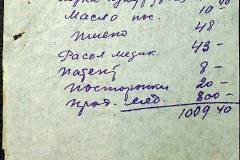 Масло пос. 10 40
Пшено 48
Фасол медик. 43 -
Патент 8 -
Посторонки 20 -
Прот. 800 -
1009 40